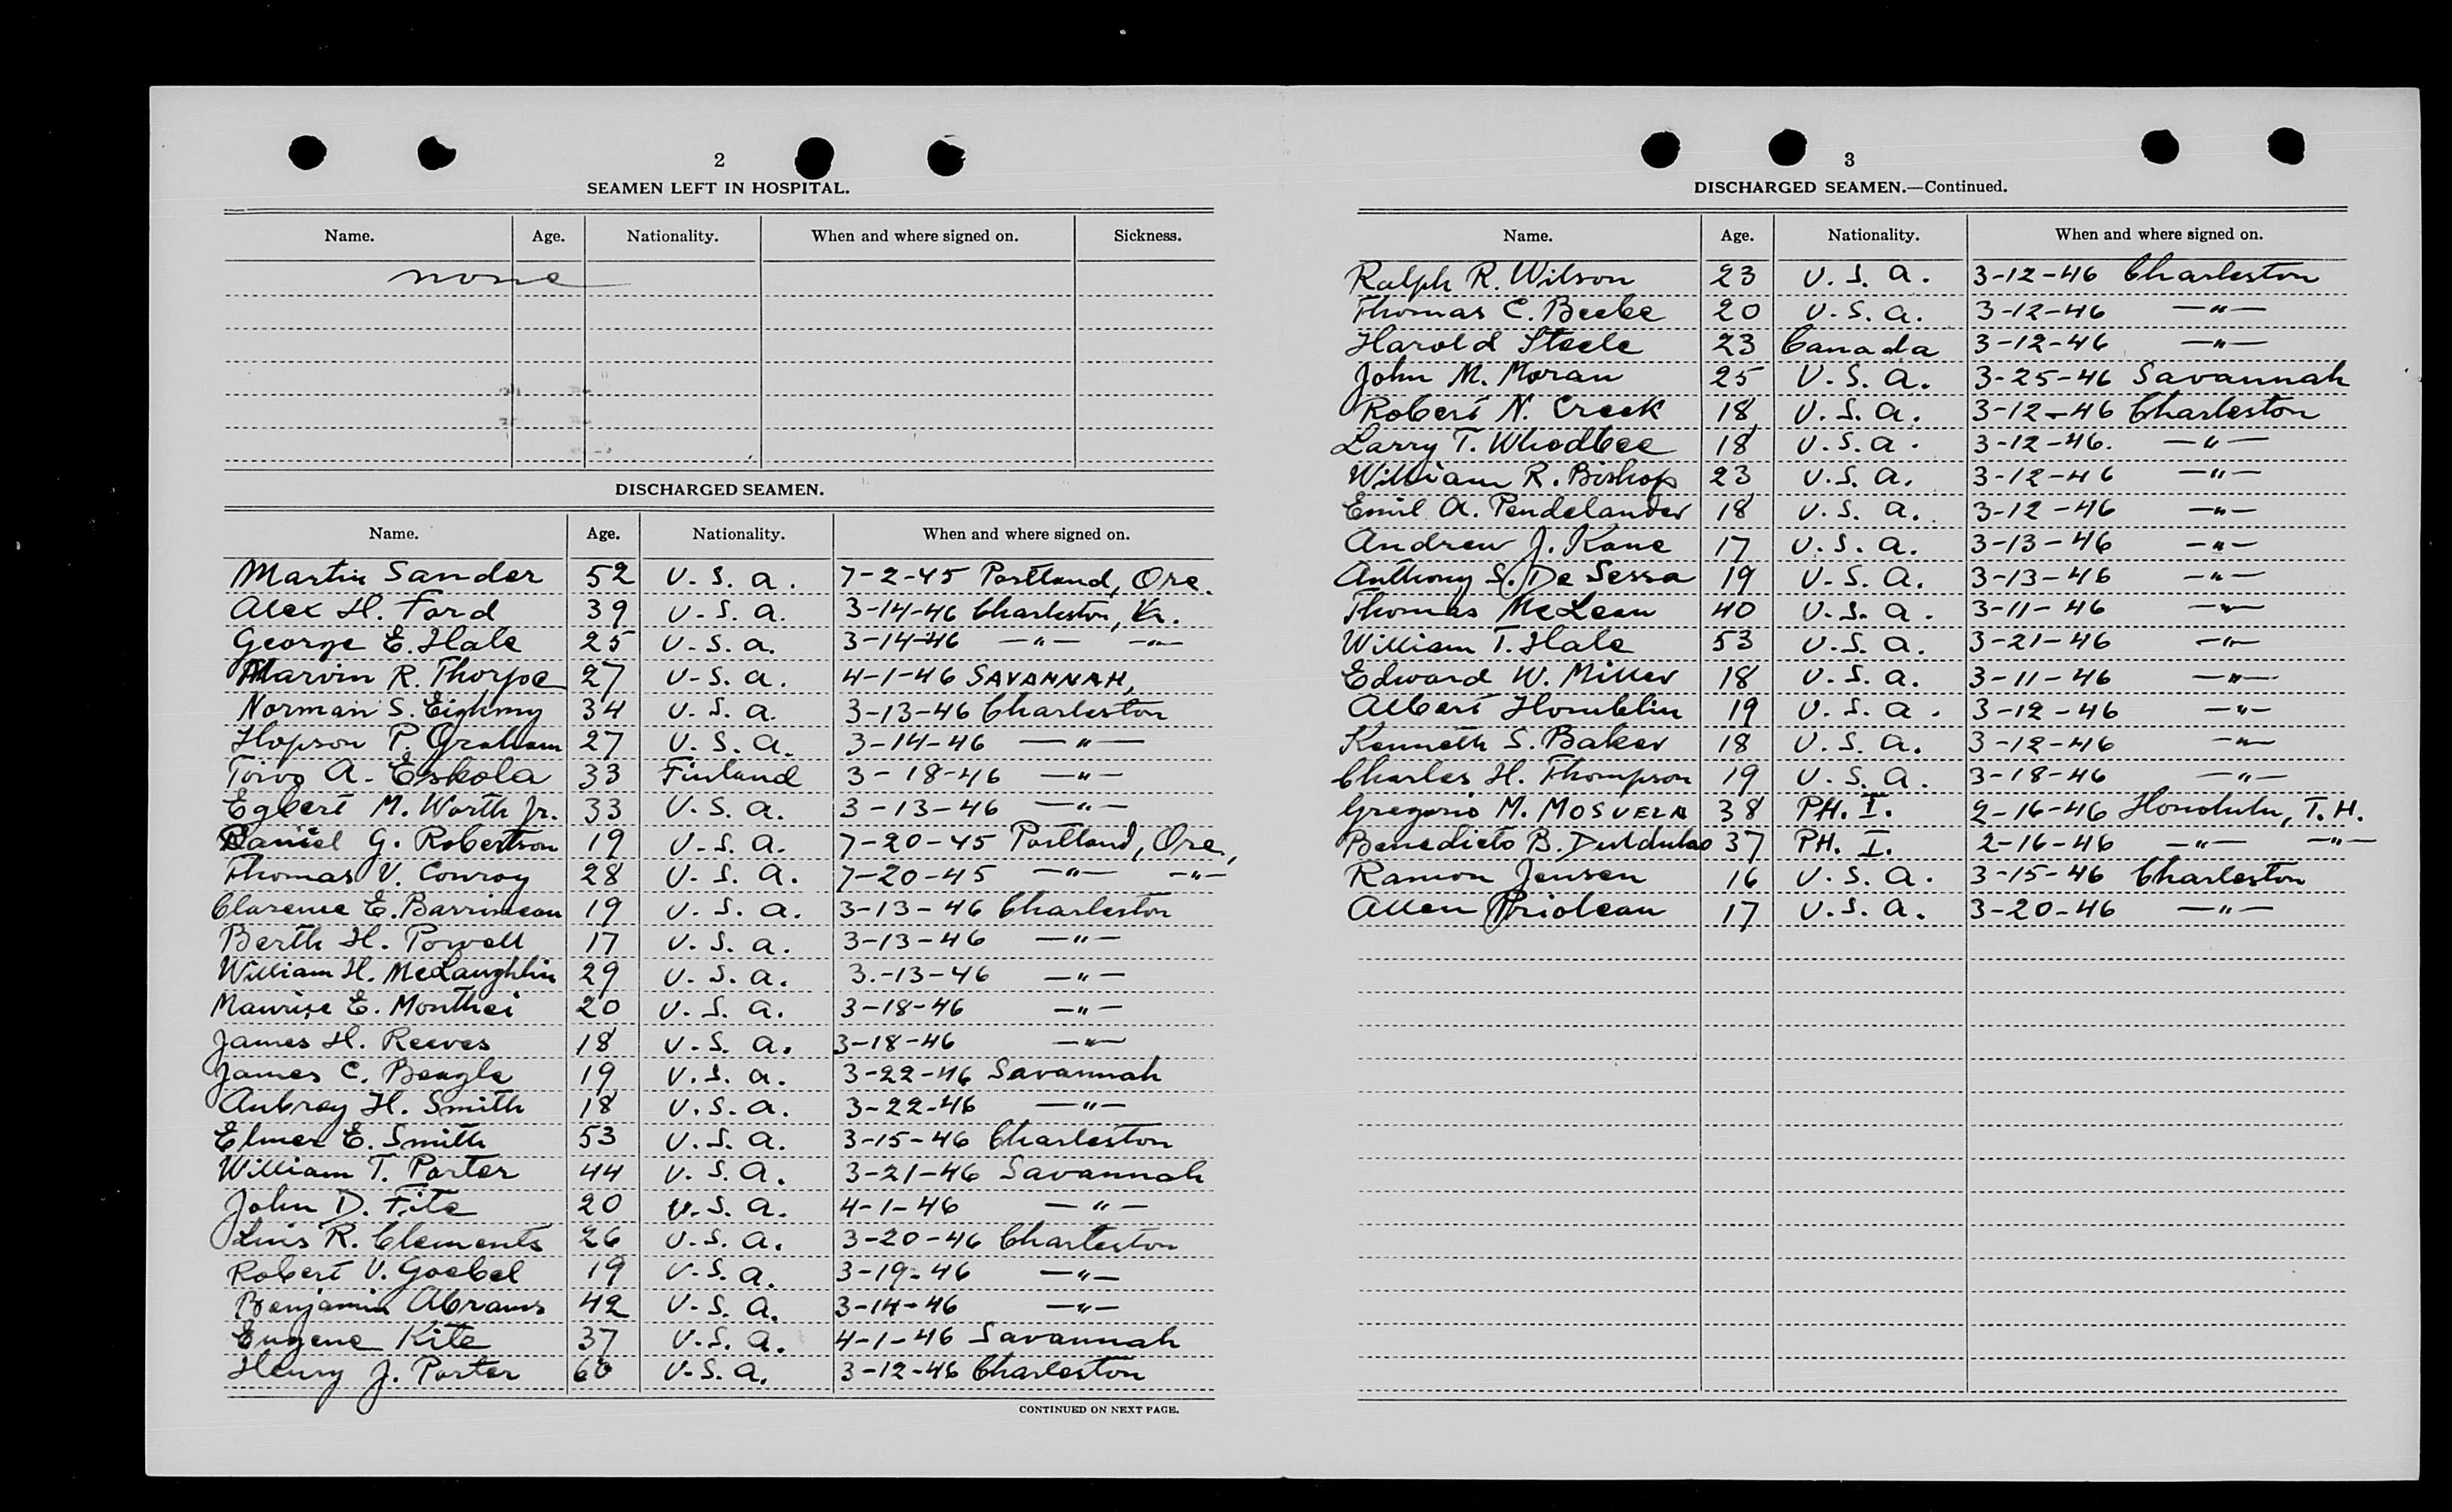 2
SEAMEN LEFT IN HOSPITAL.
Name. Age. Nationality. When and where signed on. Sickness.
none
DISCHARGED SEAMEN.
Name. Age. Nationality. When and where signed on.
Martin Sander 52 U.S.A. 7-2-45 Portland, Ore.
Alex H. Ford 39 U.S.A. 3-14-46 Charleston, Va.
George E. Hale 25 U.S.A. 3-14-46 —"— —"—
Marvin R. Thorpe 27 U.S.A. 4-1-46 SAVANNAH,
Norman S. Eighmy 34 U.S.A. 3-13-46 Charleston
Hopson P. Graham 27 U.S.A. 3-14-46 —"—
Toivo A. Eskola 33 Finland 3-18-46 —"—
Egbert M. Worth Jr. 33 U.S.A. 3-13-46 —"—
Daniel G. Robertson 19 U.S.A. 7-20-45 Portland, Ore,
Thomas V. Conroy 28 U.S.A. 7-20-45 —"— —"—
Clarence E. Barrineau 19 U.S.A. 3-13-46 Charleston
Berth H. Powell 17 U.S.A. 3-13-46 —"—
William H. McLaughlin 29 U.S.A. 3-13-46 —"—
Maurice E. Monthei 20 U.S.A. 3-18-46 —"—
James H. Reeves 18 U.S.A. 3-18-46 —"—
James C. Beagle 19 U.S.A. 3-22-46 Savannah
Aubrey H. Smith 18 U.S.A. 3-22-46 —"—
Elmer E. Smith 53 U.S.A. 3-15-46 Charleston
William T. Porter 44 U.S.A. 3-21-46 Savannah
John D. Fite 20 U.S.A. 4-1-46 —"—
Luis R. Clements 26 U.S.A. 3-20-46 Charleston
Robert V. Goebel 19 U.S.A. 3-19-46 —"—
Benjamin Abrams 42 U.S.A. 3-14-46 —"—
Eugene Kite 37 U.S.A. 4-1-46 Savannah
Henry J. Porter 60 U.S.A. 3-12-46 Charleston
CONTINUED ON NEXT PAGE.
3
DISCHARGED SEAMEN.—Continued.
Name. Age. Nationality. When and where signed on.
Ralph R. Wilson 23 U.S.A. 3-12-46 Charleston
Thomas C. Beebe 20 U.S.A. 3-12-46 —"—
Harold Steele 23 Canada 3-12-46 —"—
John M. Moran 25 U.S.A. 3-25-46 Savannah
Robert N. Creek 18 U.S.A. 3-12-46 Charleston
Larry T. Whodbee 18 U.S.A. 3-12-46. —"—
William R. Bishop 23 U.S.A. 3-12-46 —"—
Emil A. Pendelander 18 U.S.A. 3-12-46 —"—
Andrew J. Kane 17 U.S.A. 3-13-46 —"—
Anthony S. De Sessa 19 U.S.A. 3-13-46 —"—
Thomas McLean 40 U.S.A. 3-11-46 —"—
William T. Hale 53 U.S.A. 3-21-46 —"—
Edward W. Miller 18 U.S.A. 3-11-46 —"—
Albert Homblin 19 U.S.A. 3-12-46 —"—
Kenneth S. Baker 18 U.S.A. 3-12-46 —"—
Charles H. Thompson 19 U.S.A. 3-18-46 —"—
Gregorio M. MOSUELA 38 PH. I. 2-16-46 Honolulu, T.H.
Benedicto B. Duldulao 37 PH. I. 2-16-46 —"— —"—
Ramon Jensen 16 U.S.A. 3-15-46 Charleston
Allen Prioleau 17 U.S.A. 3-20-46 —"—